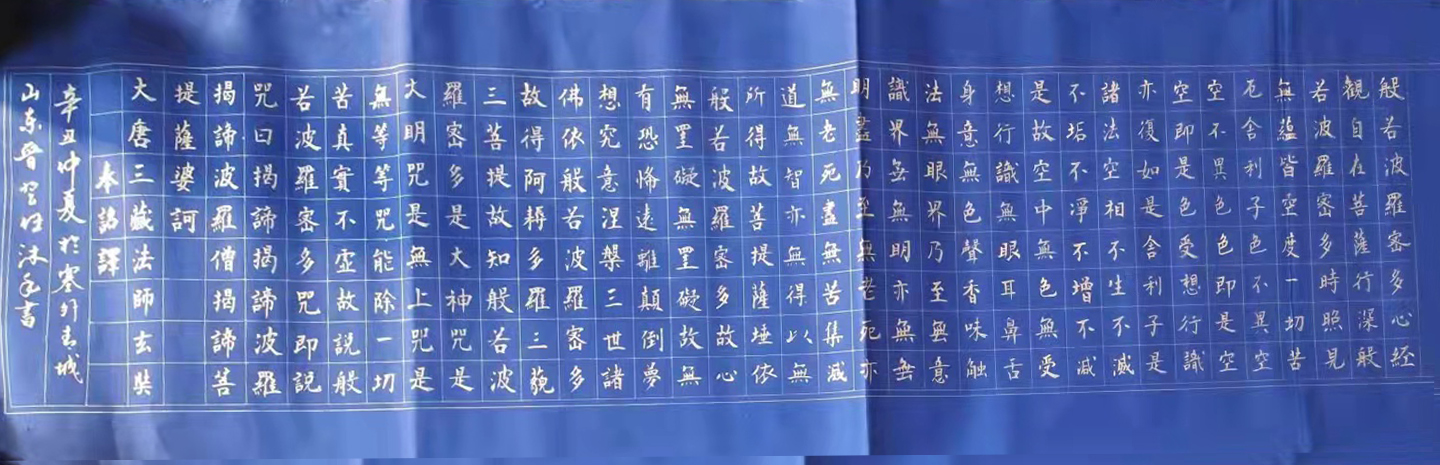 般若波羅密多心經
觀自在菩薩行深般
若波羅密多時照見
無蘊皆空度一切苦
厄舍利子色不異空
空不異色色即是空
空即是色受想行識
亦復如是舍利子是
諸法空相不生不滅
不垢不淨不增不減
是故空中無色無受
想行識無眼耳鼻舌
身意無色聲香味触
法無眼界乃至無意
識界無無明亦無無
明盡乃至無老死亦
無老死盡無苦集滅
道無智亦無得以無
所得故菩提薩埵依
般若波羅密多故心
無罣礙無罣礙故無
有恐怖遠離顛倒夢
想究意涅槃三世諸
佛依般若波羅密多
故得阿耨多羅三藐
三菩提故知般若波
羅密多是大神咒是
大明咒是無上咒是
無等等咒能除一切
苦真實不虛故說般
若波羅密多咒即說
咒曰揭諦揭諦波羅
揭諦波羅僧揭諦菩
提薩婆訶
大唐三藏法師玄奘
本詔譯
辛丑仲夏於塞外青城
山东晋沐手書